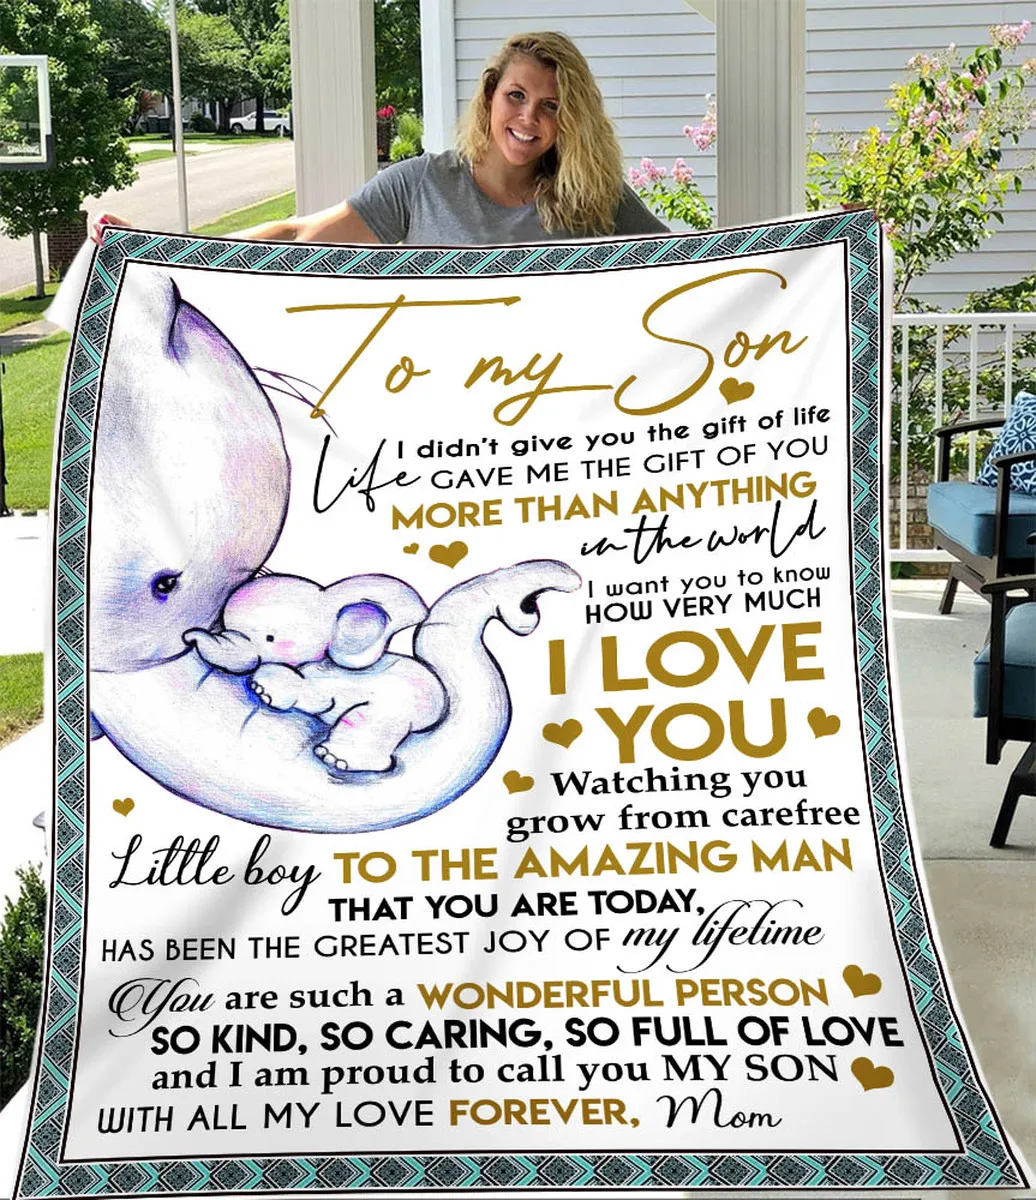 To my Son
I didn't give you the gift of life
Life GAVE ME THE GIFT OF YOU
MORE THAN ANYTHING
in the world
I want you to know
HOW VERY MUCH
I LOVE
YOU
Watching you
grow from carefree
Little boy TO THE AMAZING MAN
THAT YOU ARE TODAY,
HAS BEEN THE GREATEST JOY OF my lifetime
You are such a WONDERFUL PERSON
SO KIND, SO CARING, SO FULL OF LOVE
and I am proud to call you MY SON
WITH ALL MY LOVE FOREVER, Mom